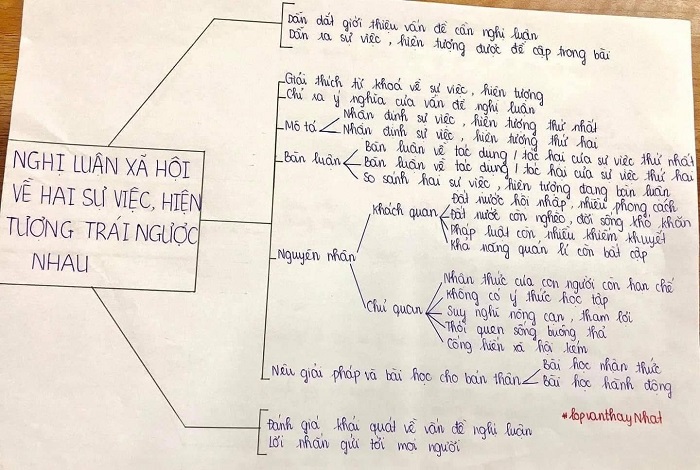 NGHỊ LUẬN XÃ HỘI
VỀ HAI SỰ VIỆC, HIỆN
TƯỢNG TRÁI NGƯỢC
NHAU
Dẫn dắt giới thiệu vấn đề cần nghị luận
Dẫn ra sự việc, hiện tượng được đề cập trong bài
Giải thích từ khoá về sự việc, hiện tượng
Chỉ ra ý nghĩa của vấn đề nghị luận
Mô tả
Nhận định sự việc, hiện tượng thứ nhất
Nhận định sự việc, hiện tượng thứ hai
Bàn luận
Bàn luận về tác dụng / tác hại của sự việc thứ nhất
Bàn luận về tác dụng / tác hại của sự việc thứ hai
So sánh hai sự việc, hiện tượng đang bàn luận
Nguyên nhân
Khách quan
Đất nước hội nhập, nhiều phong cách
Đất nước còn nghèo, đời sống khó khăn
Pháp luật còn nhiều khiếm khuyết
Khả năng quản lí còn bất cập
Chủ quan
Nhận thức của con người còn hạn chế
Không có ý thức học tập
Suy nghĩ nông cạn, tham lợi
Thói quen sống buông thả
Cống hiến xã hội kém
Nêu giải pháp và bài học cho bản thân
Bài học nhận thức
Bài học hành động
Đánh giá khái quát về vấn đề nghị luận
Lời nhắn gửi tới mọi người
#lopvanthayNhat